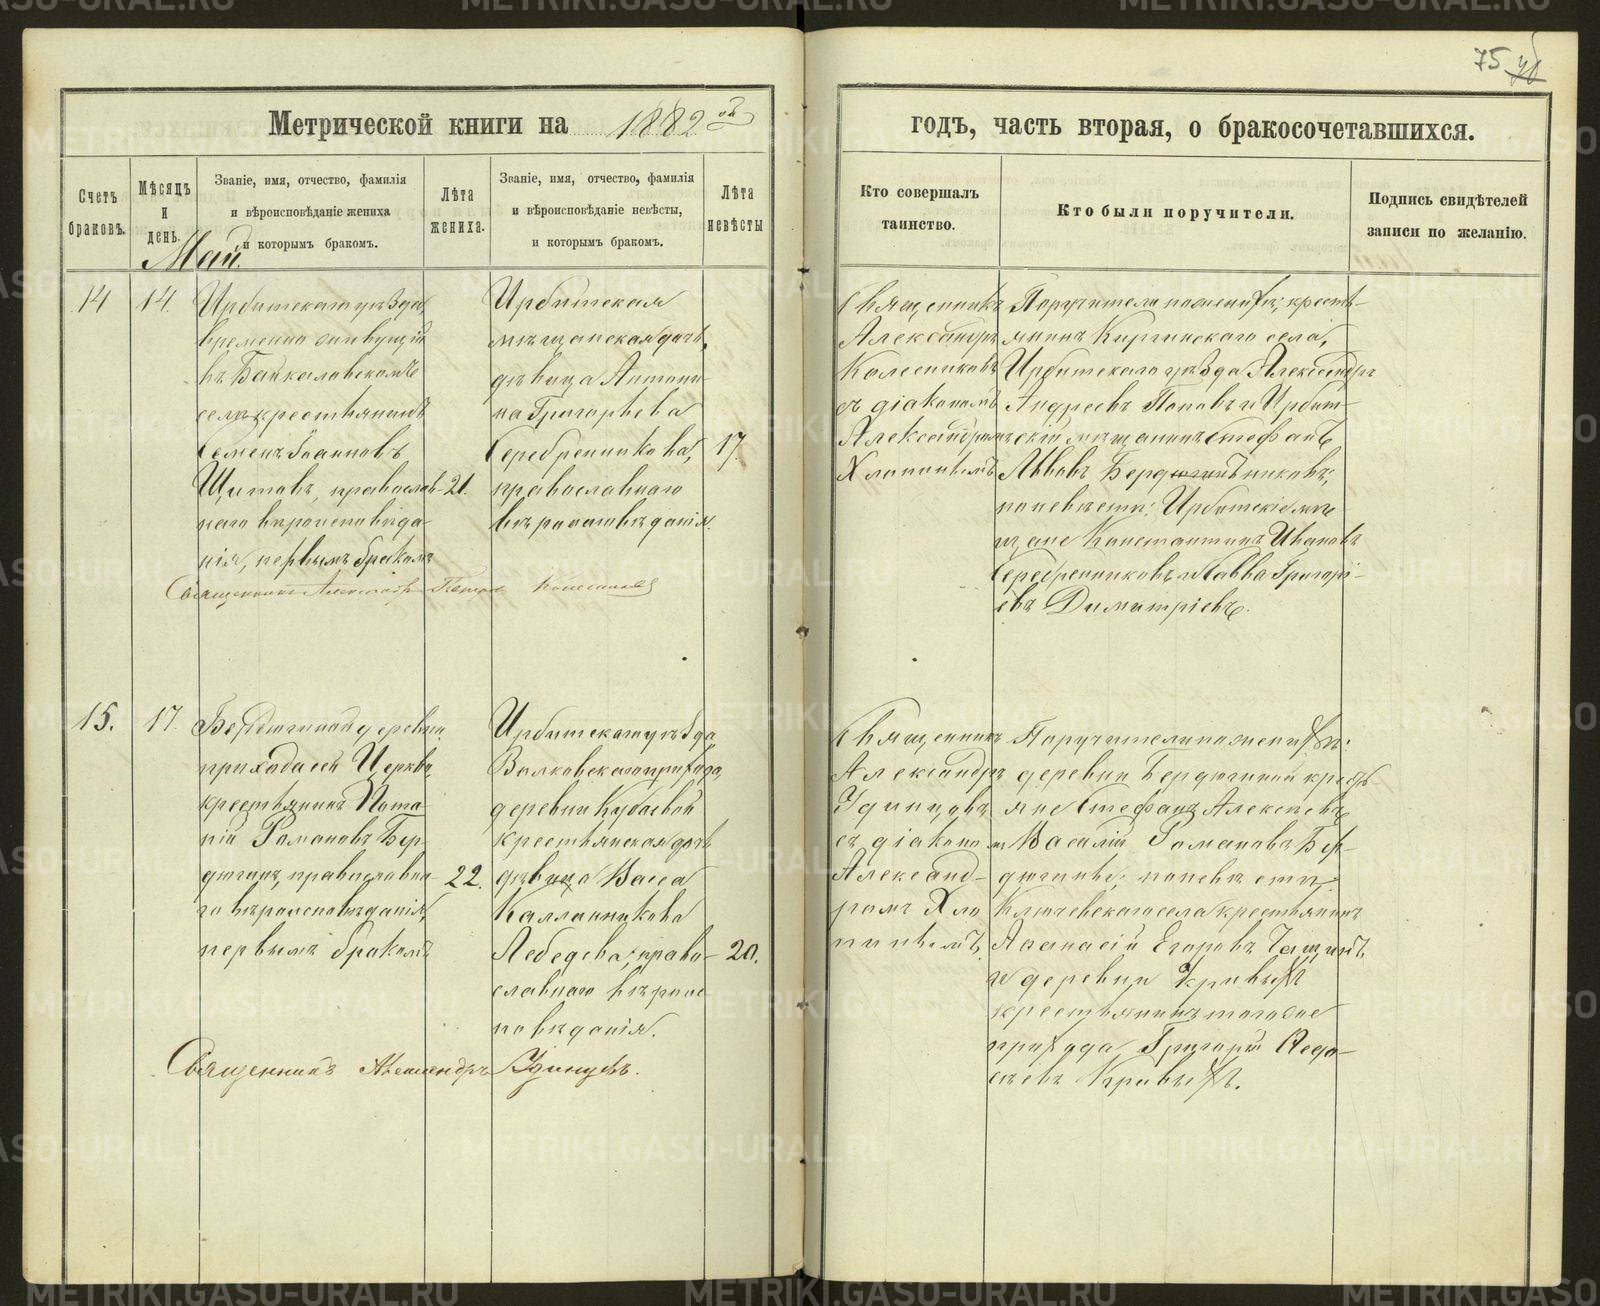 75 76
Метрической книги на 1882 ой
годъ, часть вторая, о бракосочетавшихся.
Счетъ
браковъ.
Мѣсяцъ
и
день.
Званіе, имя, отчество, фамилія
и вѣроисповѣданіе жениха
и которымъ бракомъ.
Лѣта
жениха.
Званіе, имя, отчество, фамилія
и вѣроисповѣданіе невѣсты,
и которымъ бракомъ.
Лѣта
невѣсты
Кто совершалъ
таинство.
Кто были поручители.
Подпись свидѣтелей
записи по желанію.
Май.
14
14.
Ирбитскаго уѣзда,
временно живущій
въ Байкаловскомъ
селѣ крестьянинъ
Семенъ Іоанновъ
Щитовъ, православ-
наго вѣроисповѣда-
нія, первымъ бракомъ
21.
Ирбитская
мѣщанская дочь,
дѣвица Антони-
на Григорьева
Серебренникова,
православнаго
вѣроисповѣданія.
17.
Священникъ
Александръ
Колесниковъ
съ діакономъ
Александромъ
Хлопинымъ
Поручители по женихѣ: кресть-
янинъ Киргинскаго села,
Ирбитскаго уѣзда Александръ
Андреевъ Поповъ и Ирбит-
скій мѣщанинъ Стефанъ
Львовъ Бердюшинниковъ;
по невѣстѣ: Ирбитскіе мѣ-
щане Константинъ Ивановъ
Серебренниковъ и Савва Григорі-
евъ Димитріевъ.
Священникъ Александръ Петровъ Колесниковъ
15.
17.
Бердюгиной деревни,
прихода сей Церкви,
крестьянинъ Пота-
пій Романовъ Бер-
дюгинъ, православна-
го вѣроисповѣданія,
первымъ бракомъ
22.
Ирбитскаго уѣзда
Волковскаго прихода,
деревни Кубаевой
крестьянская дочь
дѣвица Васса
Каллиникова
Лебедева, право-
славнаго вѣроис-
повѣданія.
20.
Священникъ
Александръ
Удинцовъ
съ діакономъ
Александ-
ромъ Хло
пинымъ
Поручители по женихѣ:
деревни Бердюгиной кресть-
яне Стефанъ Алексѣевъ
и Василій Романовъ Бер-
дюгины; по невѣстѣ:
Ключевскаго села крестьянинъ
Аѳанасій Егоровъ Чащинъ
и деревни Кривыхъ
крестьянинъ того же
прихода Григорій Ѳедо-
сѣевъ Кривыхъ.
Священникъ Александръ Удинцевъ.
METRIKI.GASO-URAL.RU